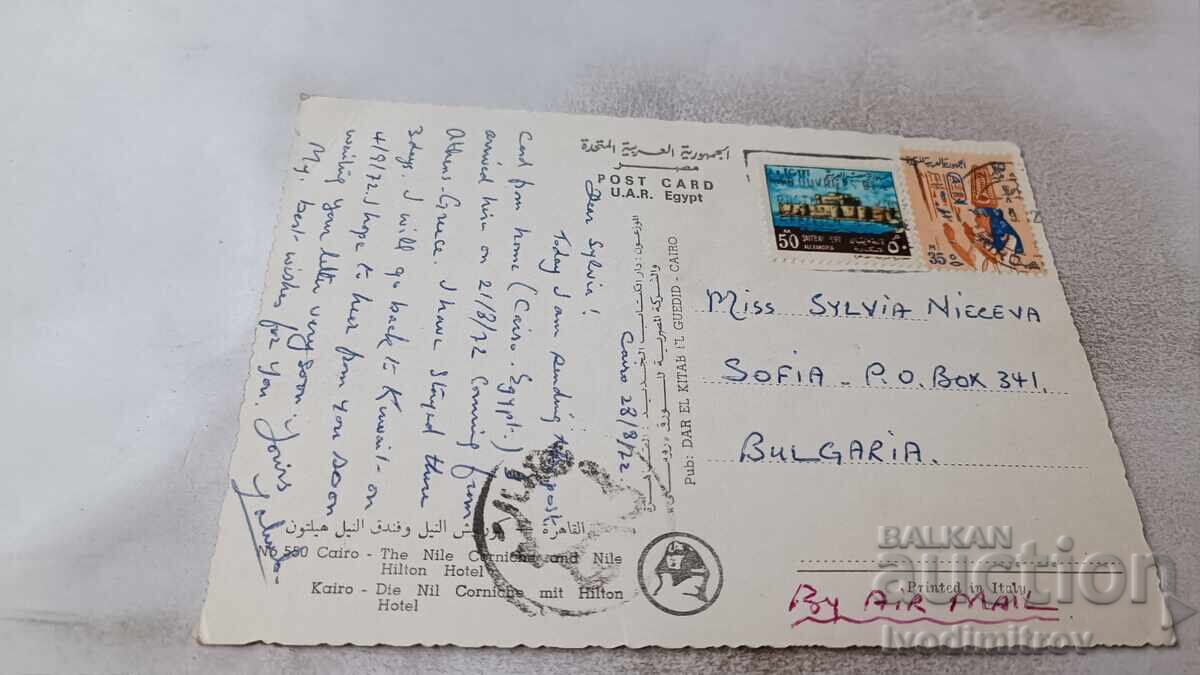 الجمهورية العربية المتحدة
مصر
POST CARD
U.A.R. Egypt
Cairo 28/8/72
Dear Sylvia!
Today I am sending this post
Card from home (Cairo. Egypt.) I
arrived here on 21/8/72 Coming from
Athens-Greece. I have stayed there
3 days. I will go back to Kuwait on
4/9/72. I hope to hear from you soon
waiting your letter very soon.
My best wishes for you. Yours
القاهرة - كورنيش النيل وفندق النيل هيلتون
No 550 Cairo - The Nile Corniche and Nile
Hilton Hotel
Kairo - Die Nil Corniche mit Hilton
Hotel
Pub: DAR EL KITAB IL GUEDID - CAIRO
50
ALEXANDRIA
M
35
Miss SYLVIA NICCEVA
SOFIA - P.O. BOX 341.
BULGARIA.
Printed in Italy
By AIR MAIL
BALKAN
auction
Ivodimitrov